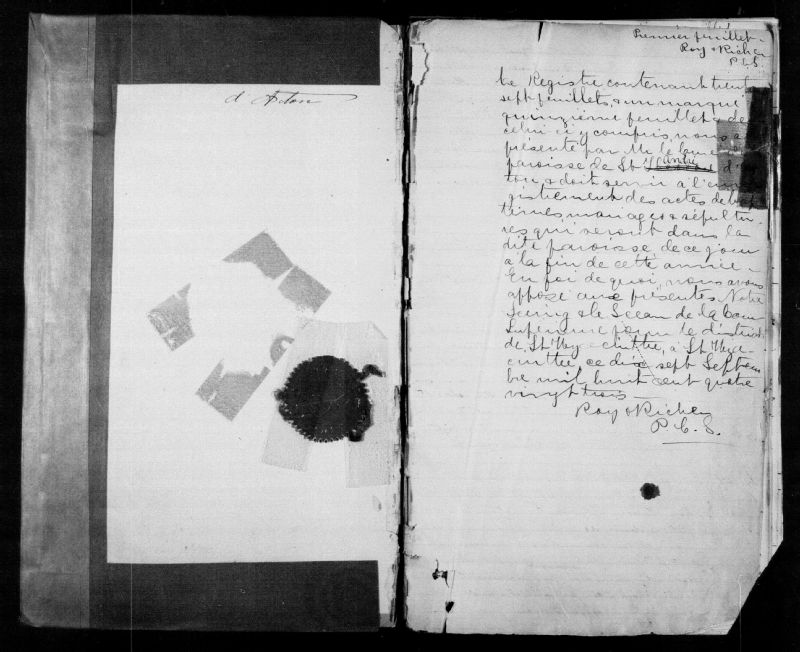 d'Acton
Premier feuillet.
Roy & Richer
P.C.S.
Ce Registre contenant trente
sept feuillets, & un marqué
quinzième feuillet & de
celui ci y compris, nous a
présenté par Mr le Curé
paroisse de St André d'
ton & doit servir à l'enre
gistrement des actes de bap
têmes mariages & sépultu
res qui seront dans la
dite paroisse de ce jour
à la fin de cette année.
En foi de quoi, nous avons
apposé aux présentes Notre
Seing & le Sceau de la Cour
Supérieure pour le district
de St Hyacinthe, à St Hya
cinthe, ce dix sept Septem
bre mil huit cent quatre
vingt trois.
Roy & Richer
P.C.S.